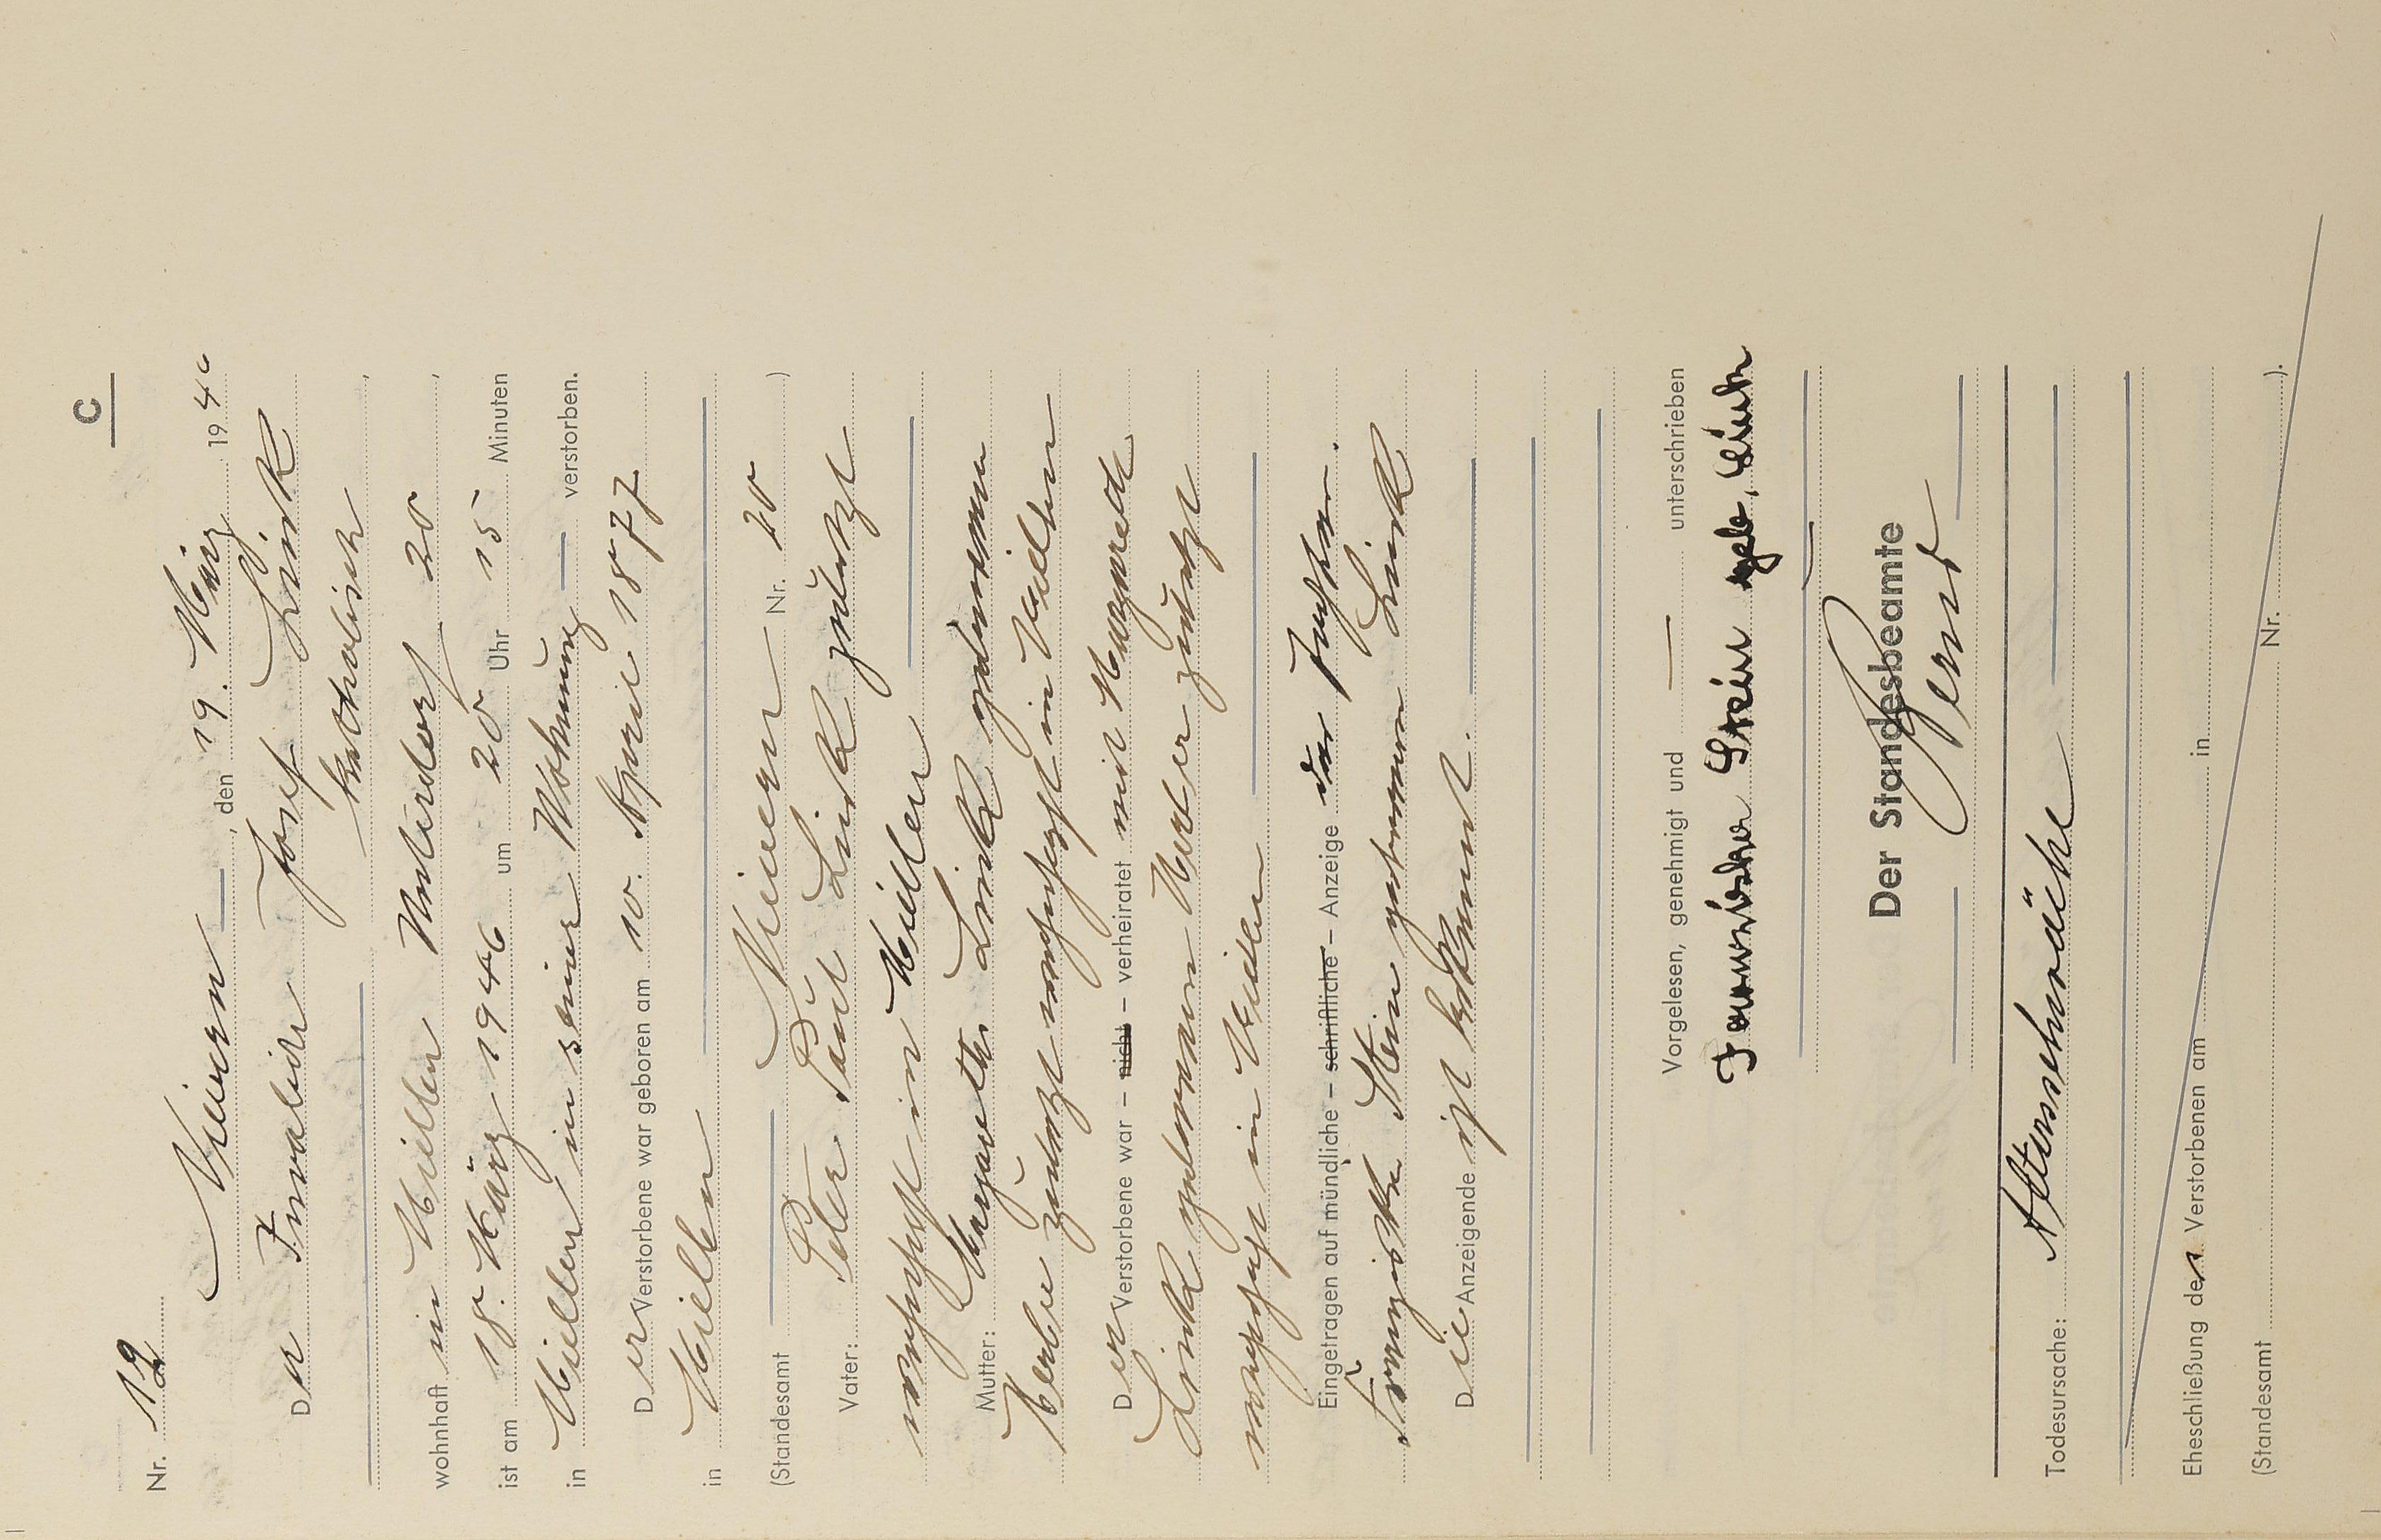 C
Nr. 12
Viviern, den 19. März 1946
Der Invalide Josef Link
katholisch
wohnhaft in Miellen Unterdorf 20
ist am 18. März 1946 um 20 Uhr 15 Minuten
in Miellen in seiner Wohnung verstorben.
Der Verstorbene war geboren am 10. April 1877
in Miellen
(Standesamt Nievern Nr. 20)
Vater: Peter Paul Link zuletzt
wohnhaft in Miellen
Mutter: Margaretha Link geborene
zuletzt wohnhaft in Miellen
Der Verstorbene war – nicht – verheiratet mit Margareth
Link geborenen zuletzt
wohnhaft in Miellen
Eingetragen auf mündliche – schriftliche – Anzeige der Ehefrau
Franziska Stein geborenen Link
Die Anzeigende ist bekannt.
Vorgelesen, genehmigt und unterschrieben
Franziska Stein geb. Link
Der Standesbeamte
Todesursache: Altersschwäche
Eheschließung des Verstorbenen am in
(Standesamt Nr. ).